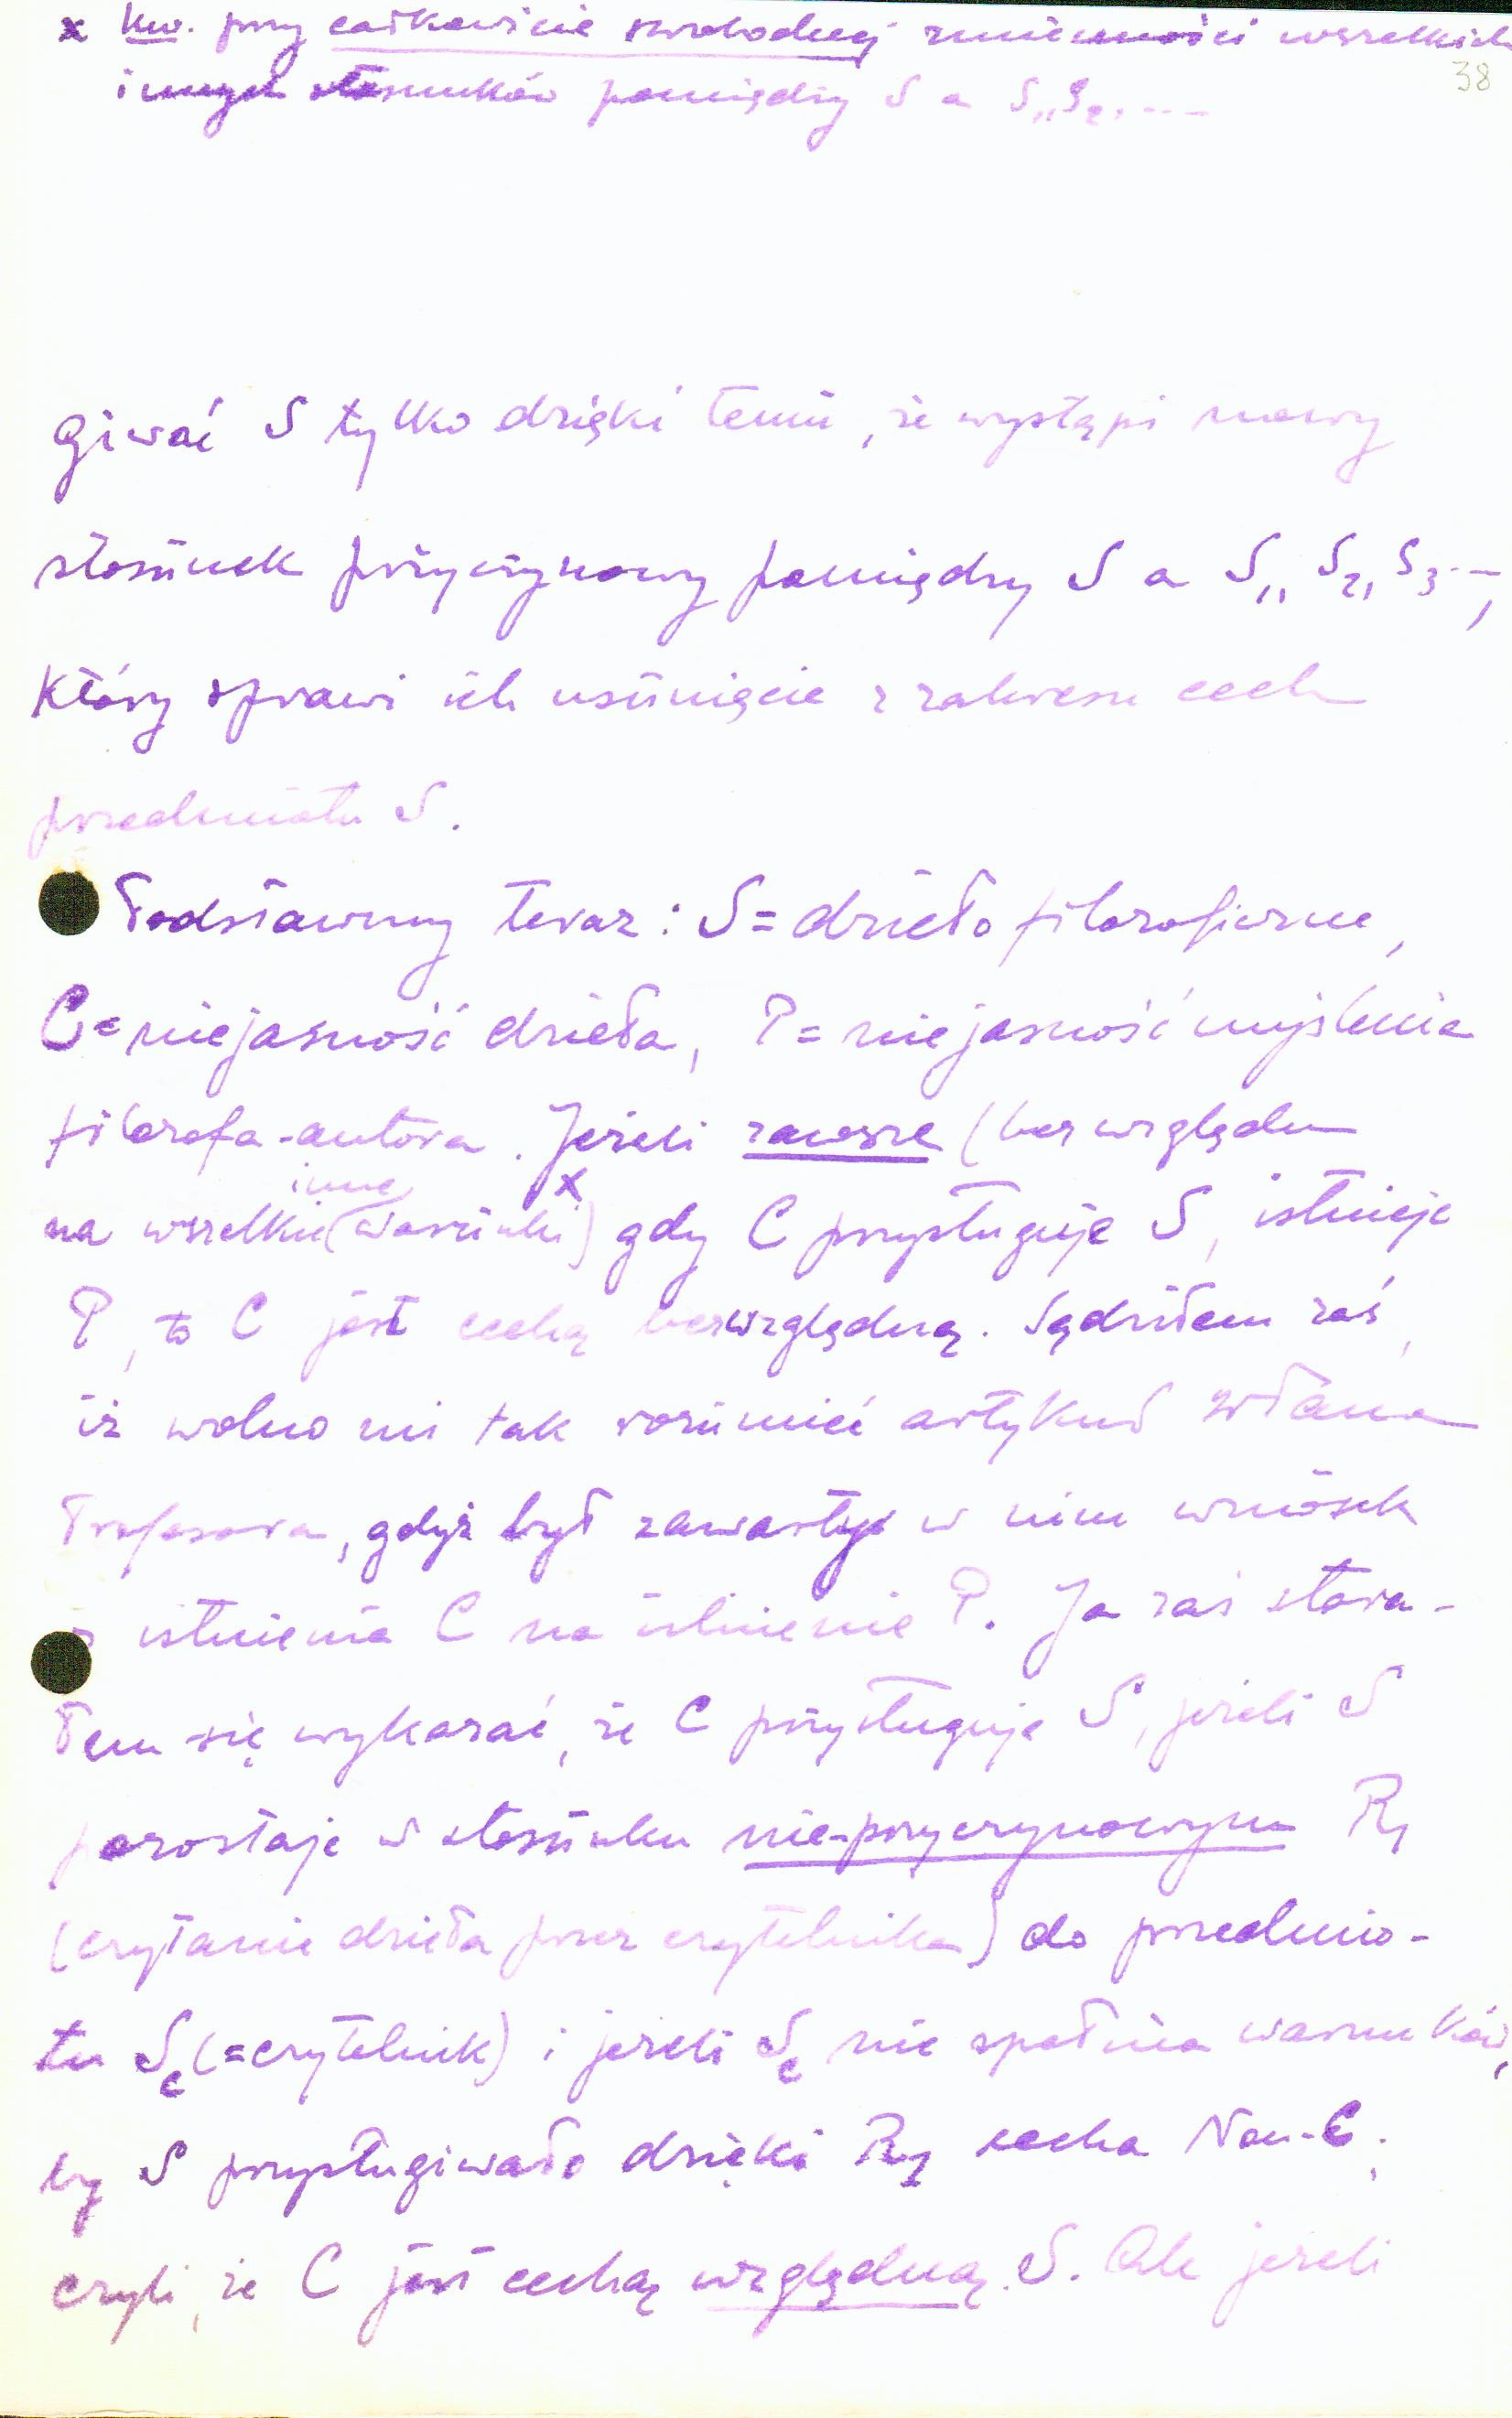 x tzn. przy całkowicie swobodnej zmienności wszelkich
38
innych stosunków pomiędzy S a S₁, S₂, ---
giwać S tylko dzięki temu, że wystąpi nowy
stosunek przyczynowy pomiędzy S a S₁, S₂, S₃ --,
który sprawi ich usunięcie z zakresu cech
przedmiotu S.
Podstawmy teraz: S = dzieło filozoficzne,
C = niejasność dzieła, P = niejasność myślenia
filozofa-autora. Jeżeli zawsze (bez względu
na wszelkie (inne warunki) x gdy C przysługuje S, istnieje
P, to C jest cechą bezwzględną. Sądziłem zaś,
iż wolno mi tak rozumieć artykuł
Profesora, gdyż był zawarty w nim wniosek
z istnienia C na istnienie P. Ja zaś stara-
łem się wykazać, że C przysługuje S, jeżeli S
pozostaje w stosunku nie-przyczynowym R₁
(czytanie dzieła przez czytelnika) do przedmio-
tu Sc (=czytelnik) i jeżeli Sc nie spełnia warunków,
by S przysługiwała dzięki R₁ cecha Non-C;
czyli, że C jest cechą względną S. Ale jeżeli